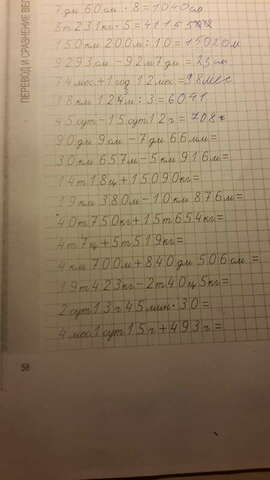 ПЕРЕВОД И СРАВНЕНИЕ ВЕ
7 дм 60 см · 8 = 1040 см
8т 231 кг · 5 = 41155
150 км 200 м : 10 = 15020 м
9293 см - 92 м 7 дм =
74 мес + 1 год 12 мес = 98 мес
18 км 124 м : 3 = 6041
45 сут - 15 сут 12 г = 708 г
90 дм 9 см - 7 дм 66 мм =
30 км 657 м - 5 км 916 м =
14т 18ц + 15090 кг =
19 км 380 м - 10 км 876 м =
40т 750 кг + 15т 654 кг =
4т 7ц + 5т 519 кг =
4 км 700 м + 840 дм 506 см =
19т 423 кг - 2т 40ц 5 кг =
2 сут 13 г 45 мин · 30 =
4 мес 1 сут 15 г + 493 г =
58